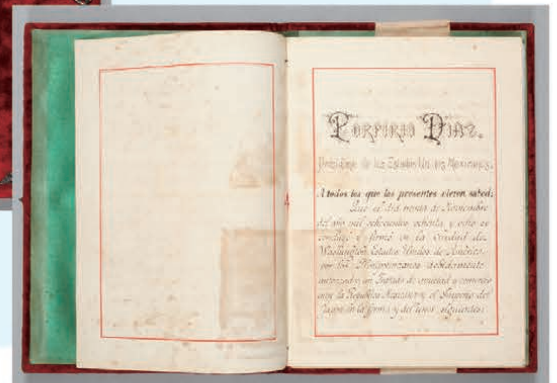 Porfirio Diaz.
Presidente de los Estados Unidos Mexicanos,
A todos los que las presentes vieren sabed:
Que el dia treinta de Noviembre
del año mil ochocientos ochenta y ocho se
concluyó y firmó en la Ciudad de
Washington, Estados Unidos de América,
por los Plenipotenciarios debidamente
autorizados un Tratado de amistad y comercio
entre la República Mexicana y el Imperio del
Japon en la forma y del tenor siguientes: